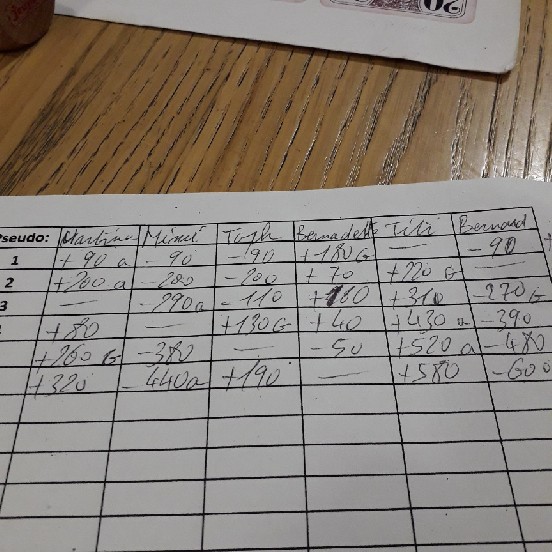 Pseudo: Martine Minut Bernadette Titi Bernard
1 +90 a -90 -90 +180 G — -90
2 +200 a -200 -200 +70 +220 G —
3 — -290 a -110 +160 +310 -270 G
+80 — +130 G +40 +430 a -390
+260 G -380 — -50 +520 a -480
+320 -440 a +190 — +580 -600